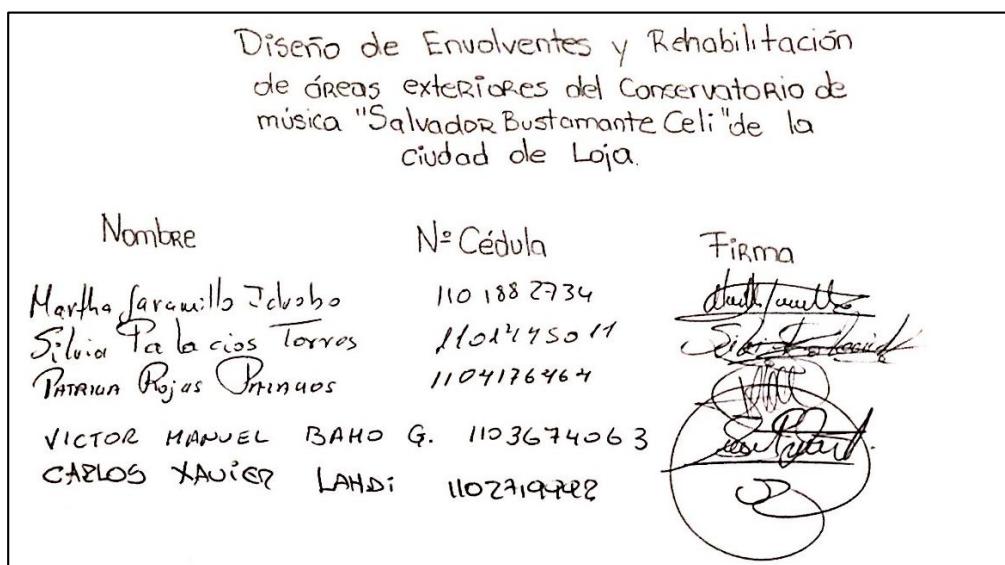 Diseño de Envolventes y Rehabilitación
de áreas exteriores del Conservatorio de
música "Salvador Bustamante Celi" de la
ciudad de Loja.
Nombre Nº Cédula Firma
Martha Jaramillo 1101882734
Silvia Palacios Torres
Patricia Rojas 1104176464
VICTOR MANUEL BAHO G. 1103674063
CARLOS XAVIER LANDI